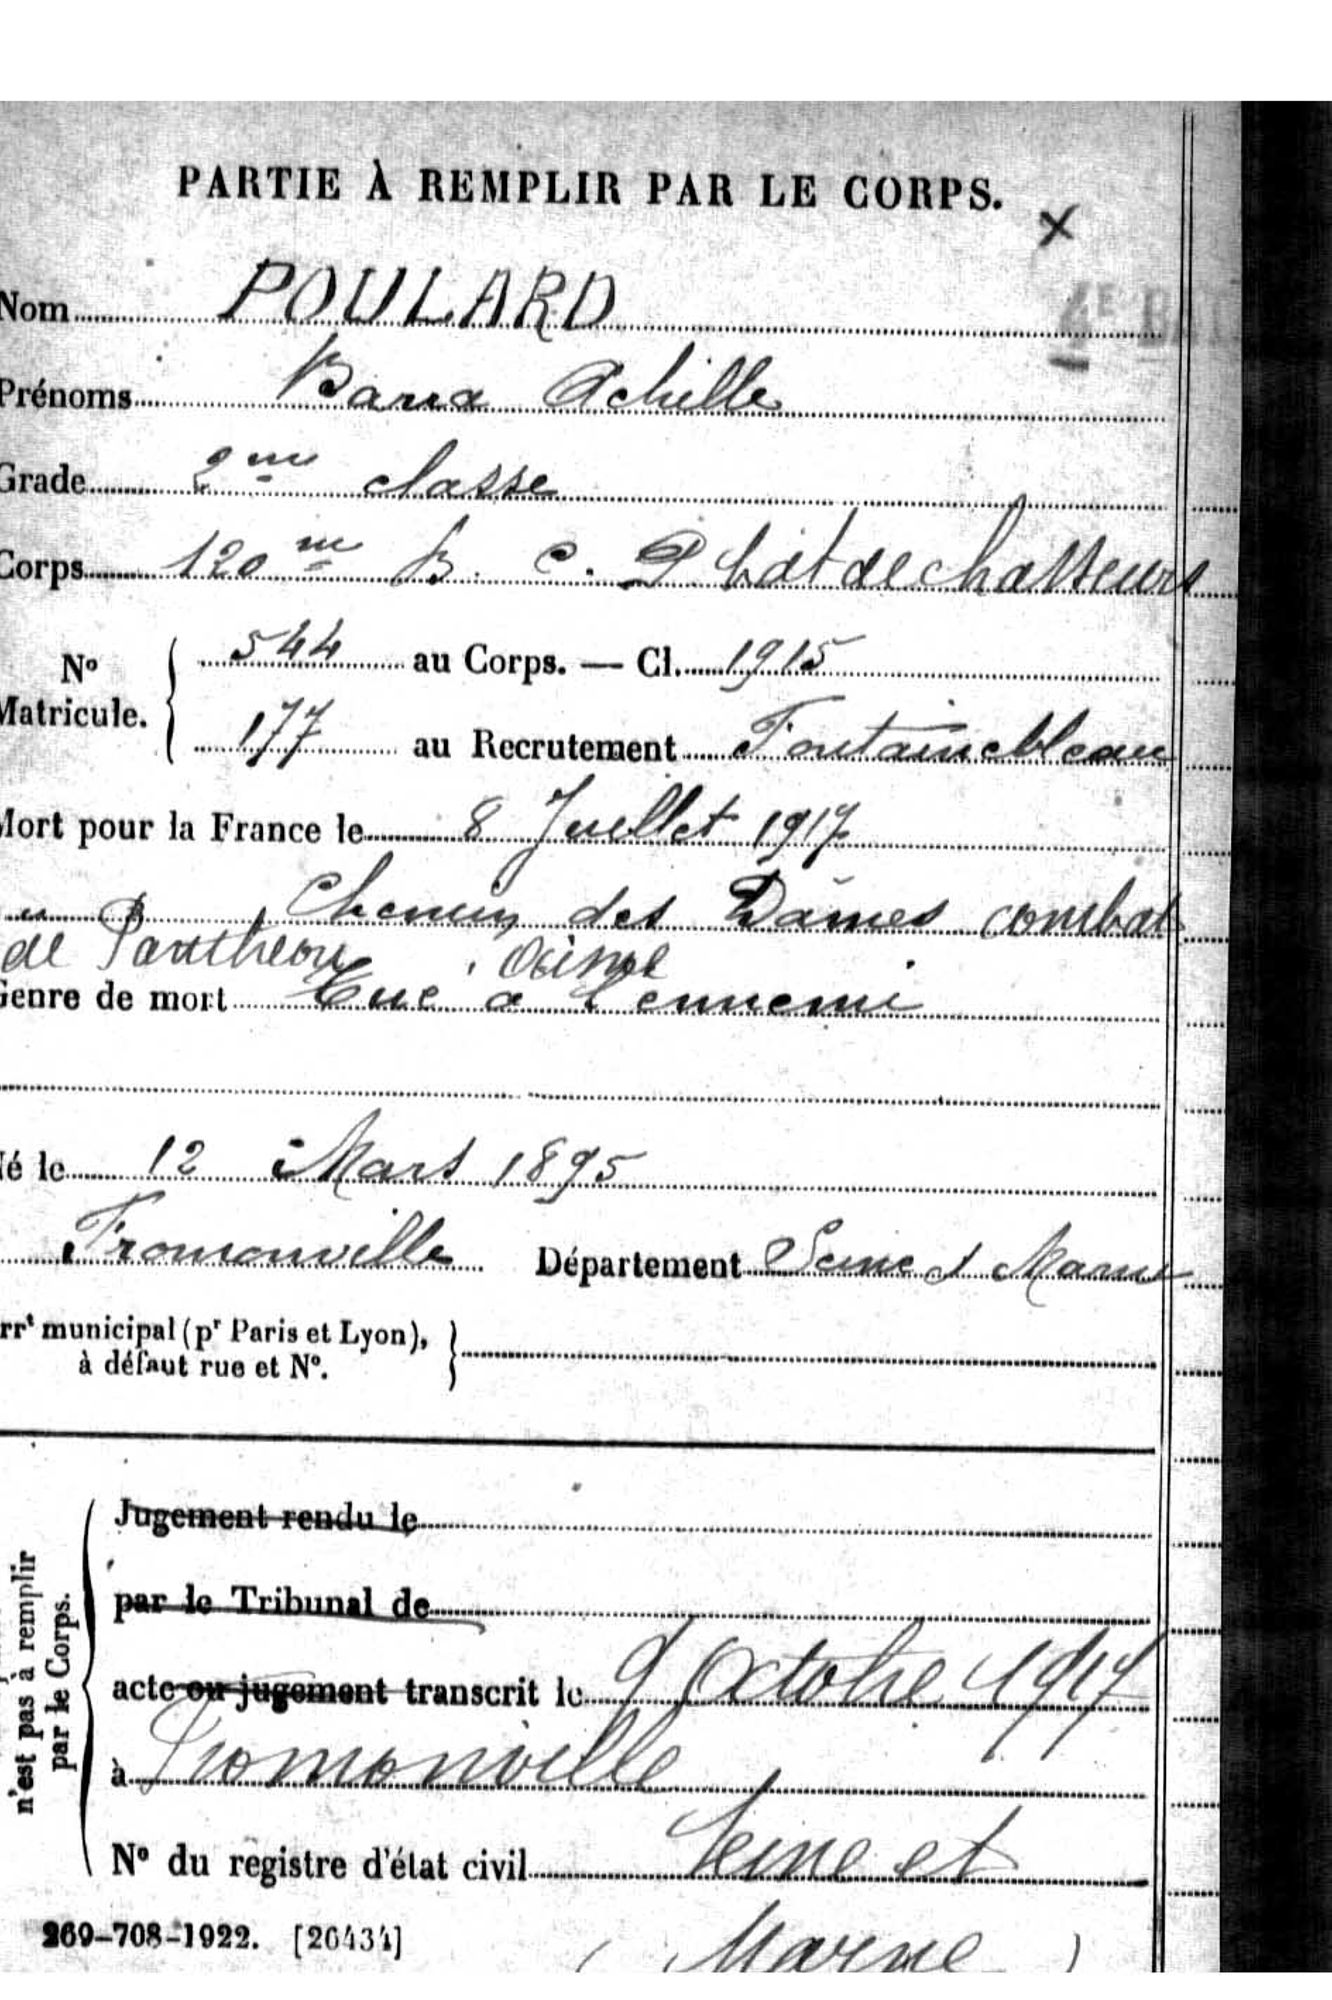 PARTIE À REMPLIR PAR LE CORPS.
4E
Nom POULARD
Prénoms Barra Achille
Grade 2me classe
Corps 120me B. C. P bat de chasseurs
No Matricule. 544 au Corps. — Cl. 1915
177 au Recrutement Fontainebleau
Mort pour la France le 8 Juillet 1917
Chemin des Dames combat
de Pantheon, Aisne
Genre de mort Tué à l'ennemi
Né le 12 Mars 1895
Fromonville Département Seine & Marne
rrt municipal (pr Paris et Lyon),
à défaut rue et No.
n'est pas à remplir
par le Corps.
Jugement rendu le
par le Tribunal de
acte ou jugement transcrit le 9 Octobre 1917
à Fromonville
No du registre d'état civil Seine et
Marne
269-708-1922. [26434]